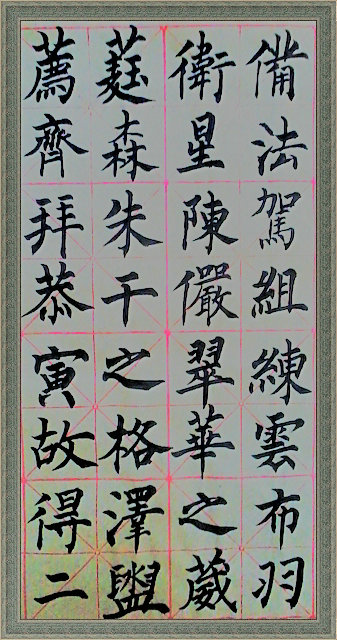 備法駕組練雲布羽
衛星陳儼翠華之葳
蕤森朱干之格澤盥
薦齊拜恭寅故得二